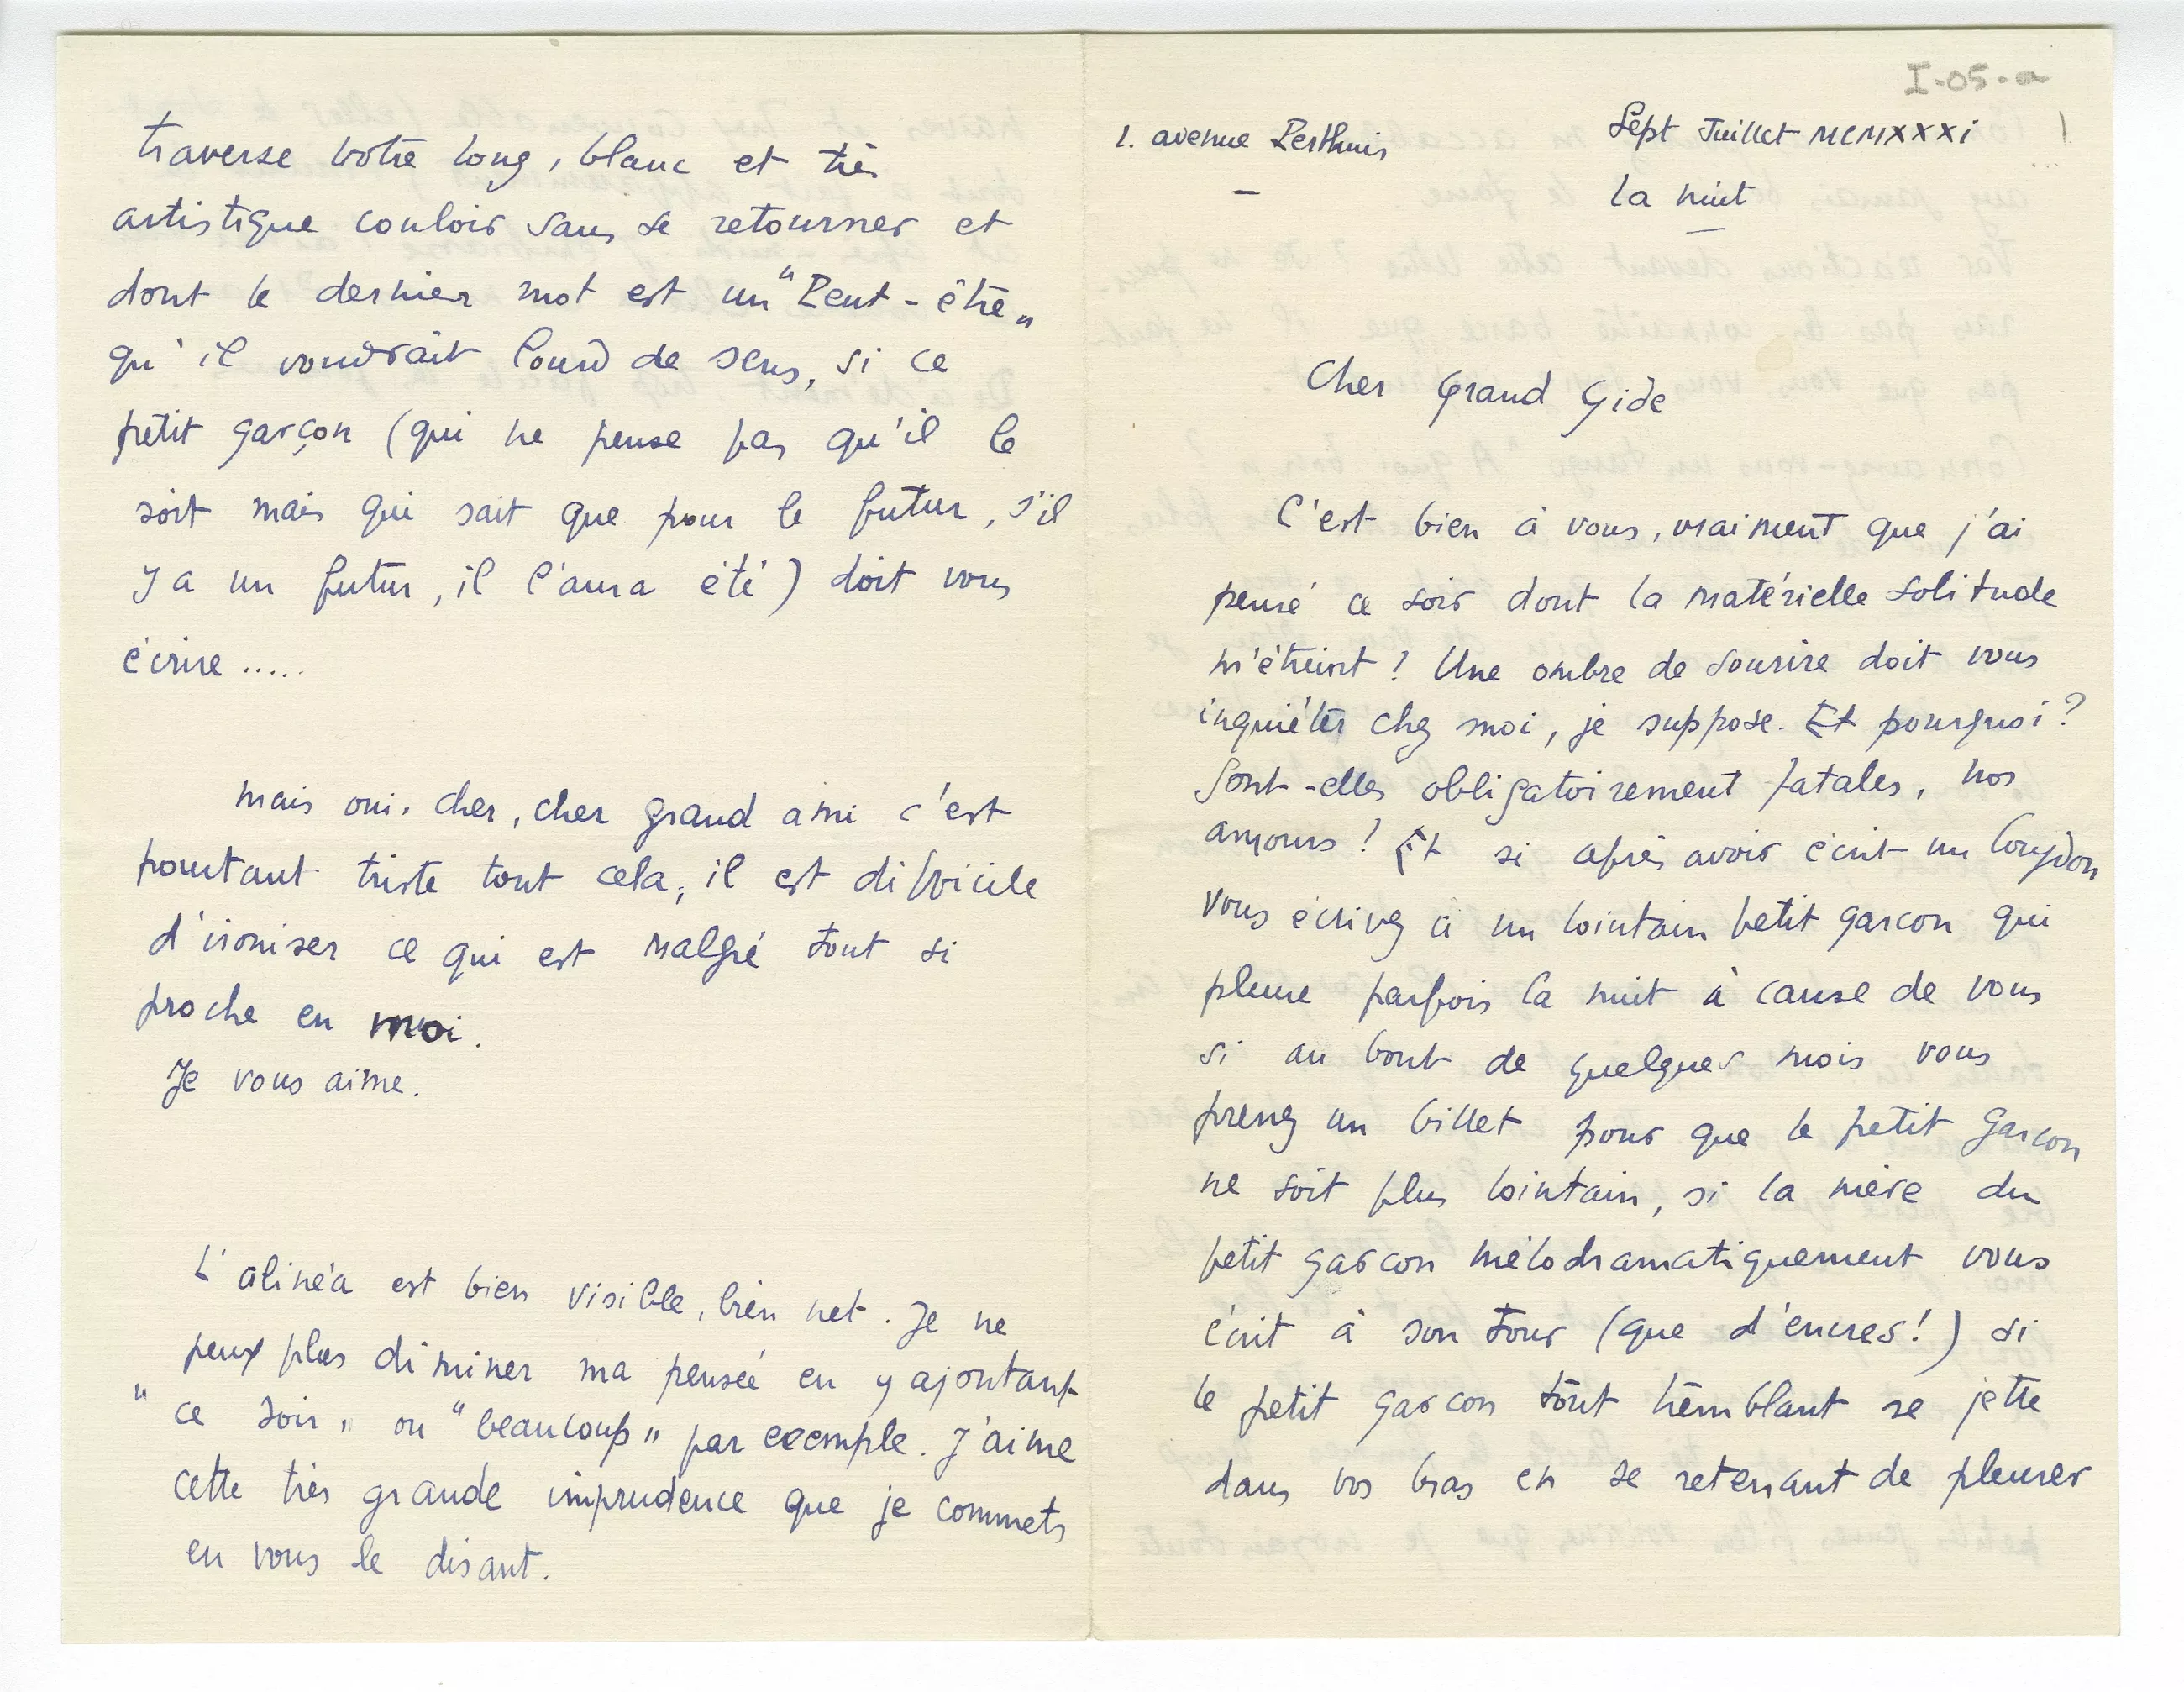 I-05-a
1. avenue Perthuis
Sept Juillet MCMXXXi
la nuit
Cher Grand Gide
C'est bien à vous, vraiment que j'ai
pensé ce soir dont la matérielle solitude
m'étreint ! Une ombre de sourire doit vous
inquiéter chez moi, je suppose. Et pourquoi ?
Sont-elles obligatoirement fatales, nos
amours ! Et si après avoir écrit un Corydon
vous écrivez à un lointain petit garcon qui
pleure parfois la nuit à cause de vous
si au bout de quelques mois vous
prenez un billet pour que le petit garcon
ne soit plus lointain, si la mère du
petit garcon mélodramatiquement vous
écrit à son tour (que d'encres!) si
le petit garcon tout tremblant se jette
dans vos bras en se retenant de pleurer
traverse votre long, blanc et très
artistique couloir sans se retourner et
dont le dernier mot est un "Peut-être"
qu'il voudrait lourd de sens, si ce
petit garçon (qui ne pense pas qu'il le
soit mais qui sait que pour le futur, s'il
y a un futur, il l'aura été) doit vous
écrire .....
mais oui. cher, cher grand ami c'est
pourtant triste tout cela, il est difficile
d'ironiser ce qui est malgré tout si
proche en moi.
Je vous aime.
L'alinéa est bien visible, bien net. Je ne
peux plus diminer ma pensée en y ajoutant
"ce soir" ou "beaucoup" par exemple. J'aime
cette très grande imprudence que je commets
en vous le disant.